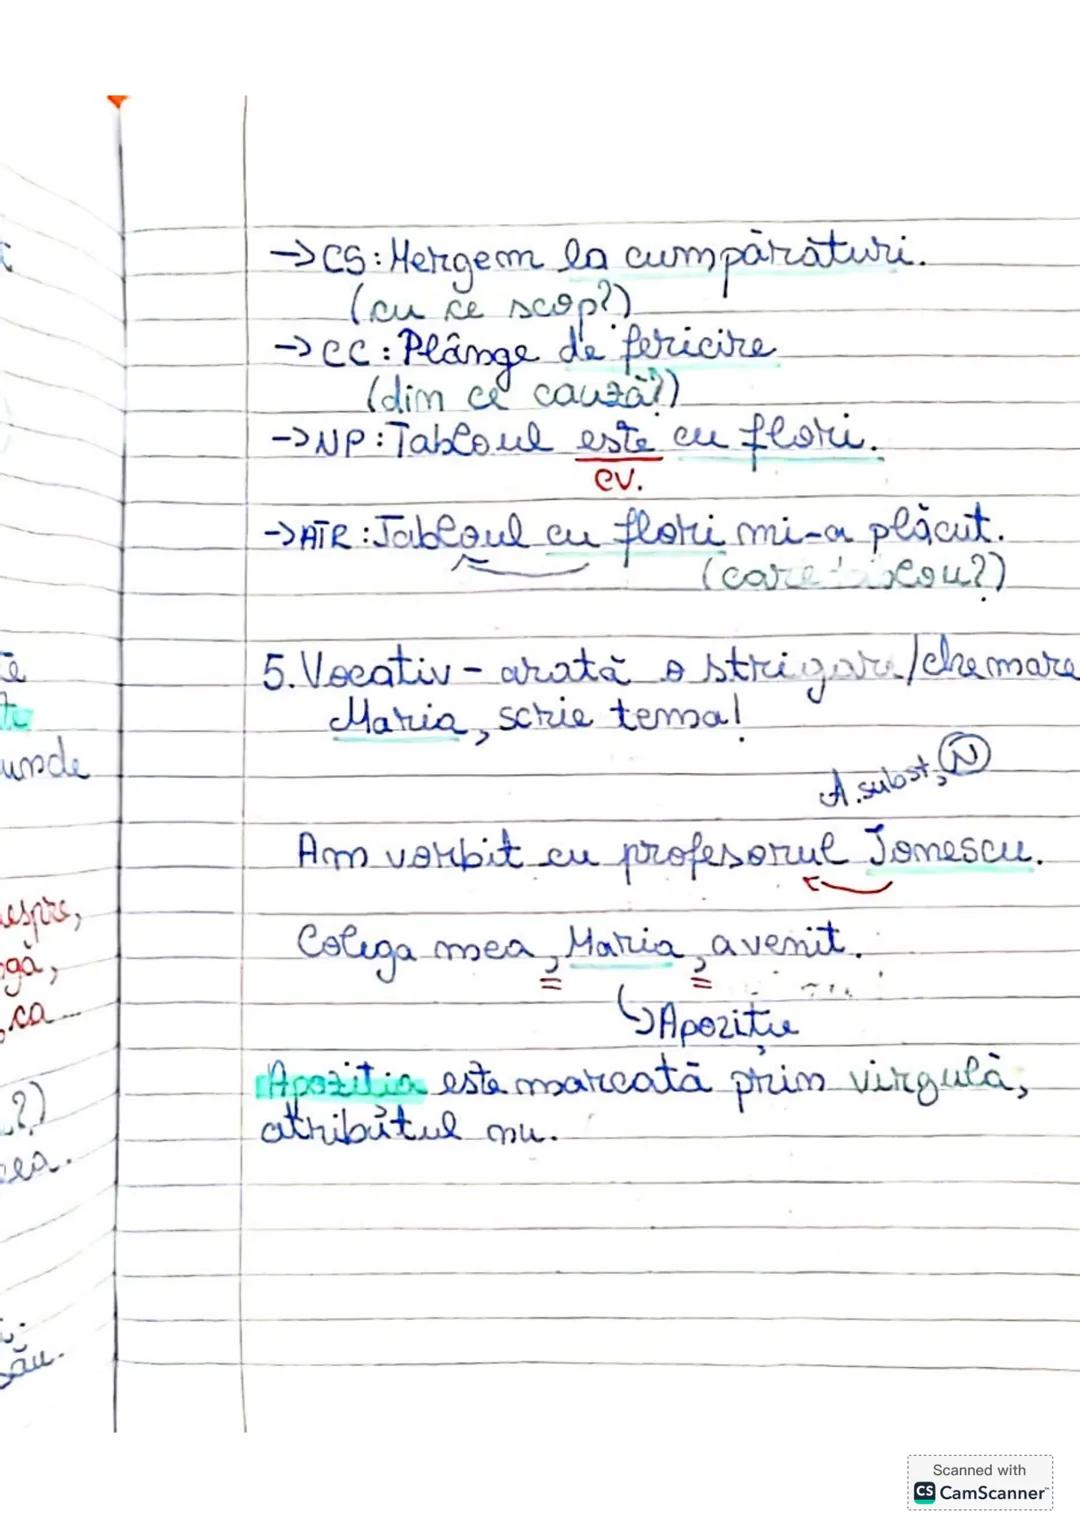 →CS: Mergem la cumpărături.
(cu ce scop?)
→CC: Plânge de fericire
(din ce cauză?)
→NP: Tabloul este cu flori.
cv.
→ATR: Tabloul cu flori mi-a plăcut.
(care tablou?)
5. Vocativ - arată o strigare/chemare
Maria, scrie tema!
A. subst, N
Am vorbit cu profesorul Ionescu.
Colega mea, Maria, a venit.
↳Apoziție
Apoziția este marcată prin virgulă,
atributul nu.
unde
espre,
ogă,
ca...
?)
său.
Scanned with
CS CamScanner